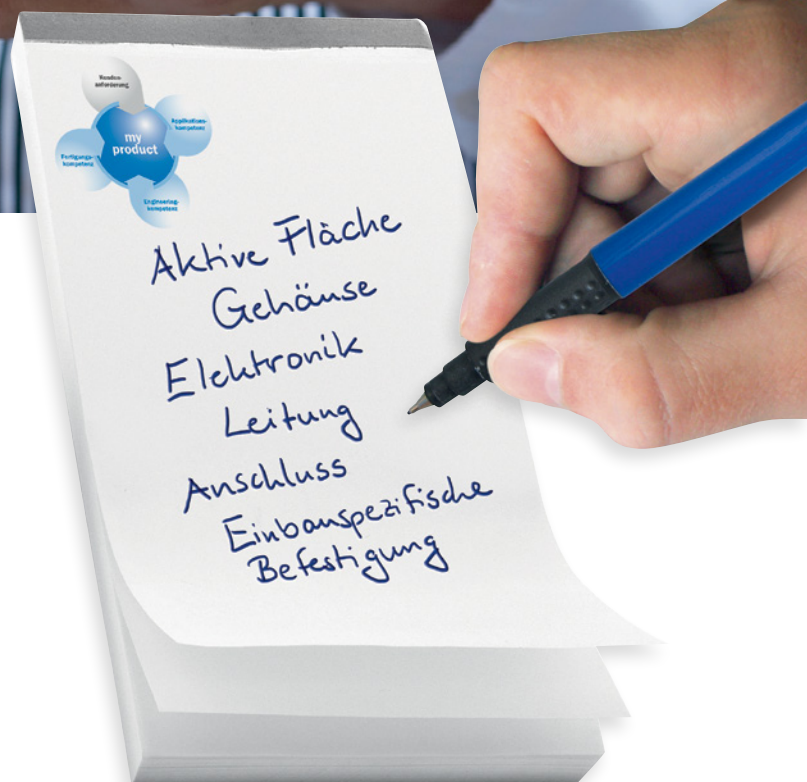 Kunden-
anforderung
Applikations-
kompetenz
my
product
Fertigungs-
kompetenz
Engineering-
kompetenz
Aktive Fläche
Gehäuse
Elektronik
Leitung
Anschluss
Einbauspezifische
Befestigung